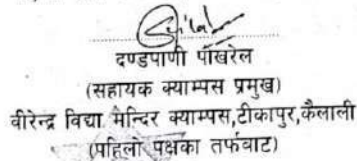 दण्डपाणी पोखरेल
(सहायक क्याम्पस प्रमुख)
वीरेन्द्र विद्या मन्दिर क्याम्पस,टीकापुर,कैलाली
(पहिलो पक्षका तर्फबाट)